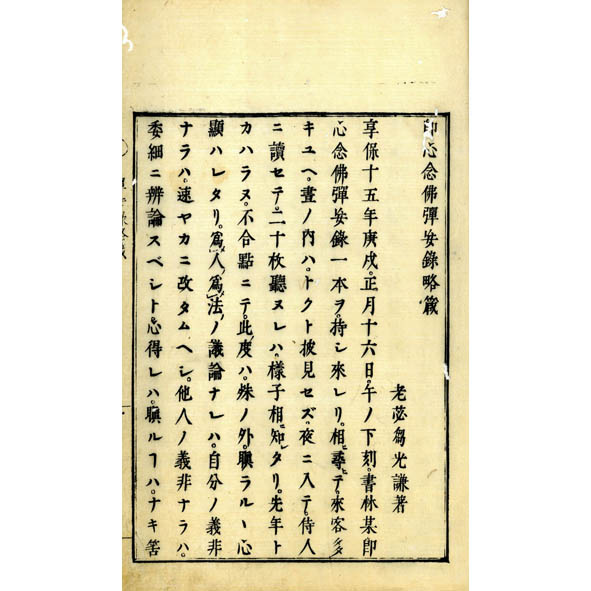 即心念佛彈妄錄略箴
老苾蒭光謙著
享保十五年庚戌。正月十六日。午ノ下刻。書林某即
心念佛彈妄錄一本ヲ。持シ來レリ。相尋テ。來客多
キユヘ。晝ノ内ハ。トクト披見セズ。夜ニ入テ。侍人
ニ讀セテ。二十枚聽ヌレハ。樣子相知タリ。先年ト
カハラヌ。不合點ニテ。此度ハ。殊ノ外。瞋ラル丶心
顯ハレタリ。爲人爲法ノ議論ナレハ。自分ノ義非
ナラハ。速ヤカニ改タムヘシ。他人ノ義非ナラハ。
委細ニ辨論スベシト。心得レハ。瞋ルヿハ。ナキ筈